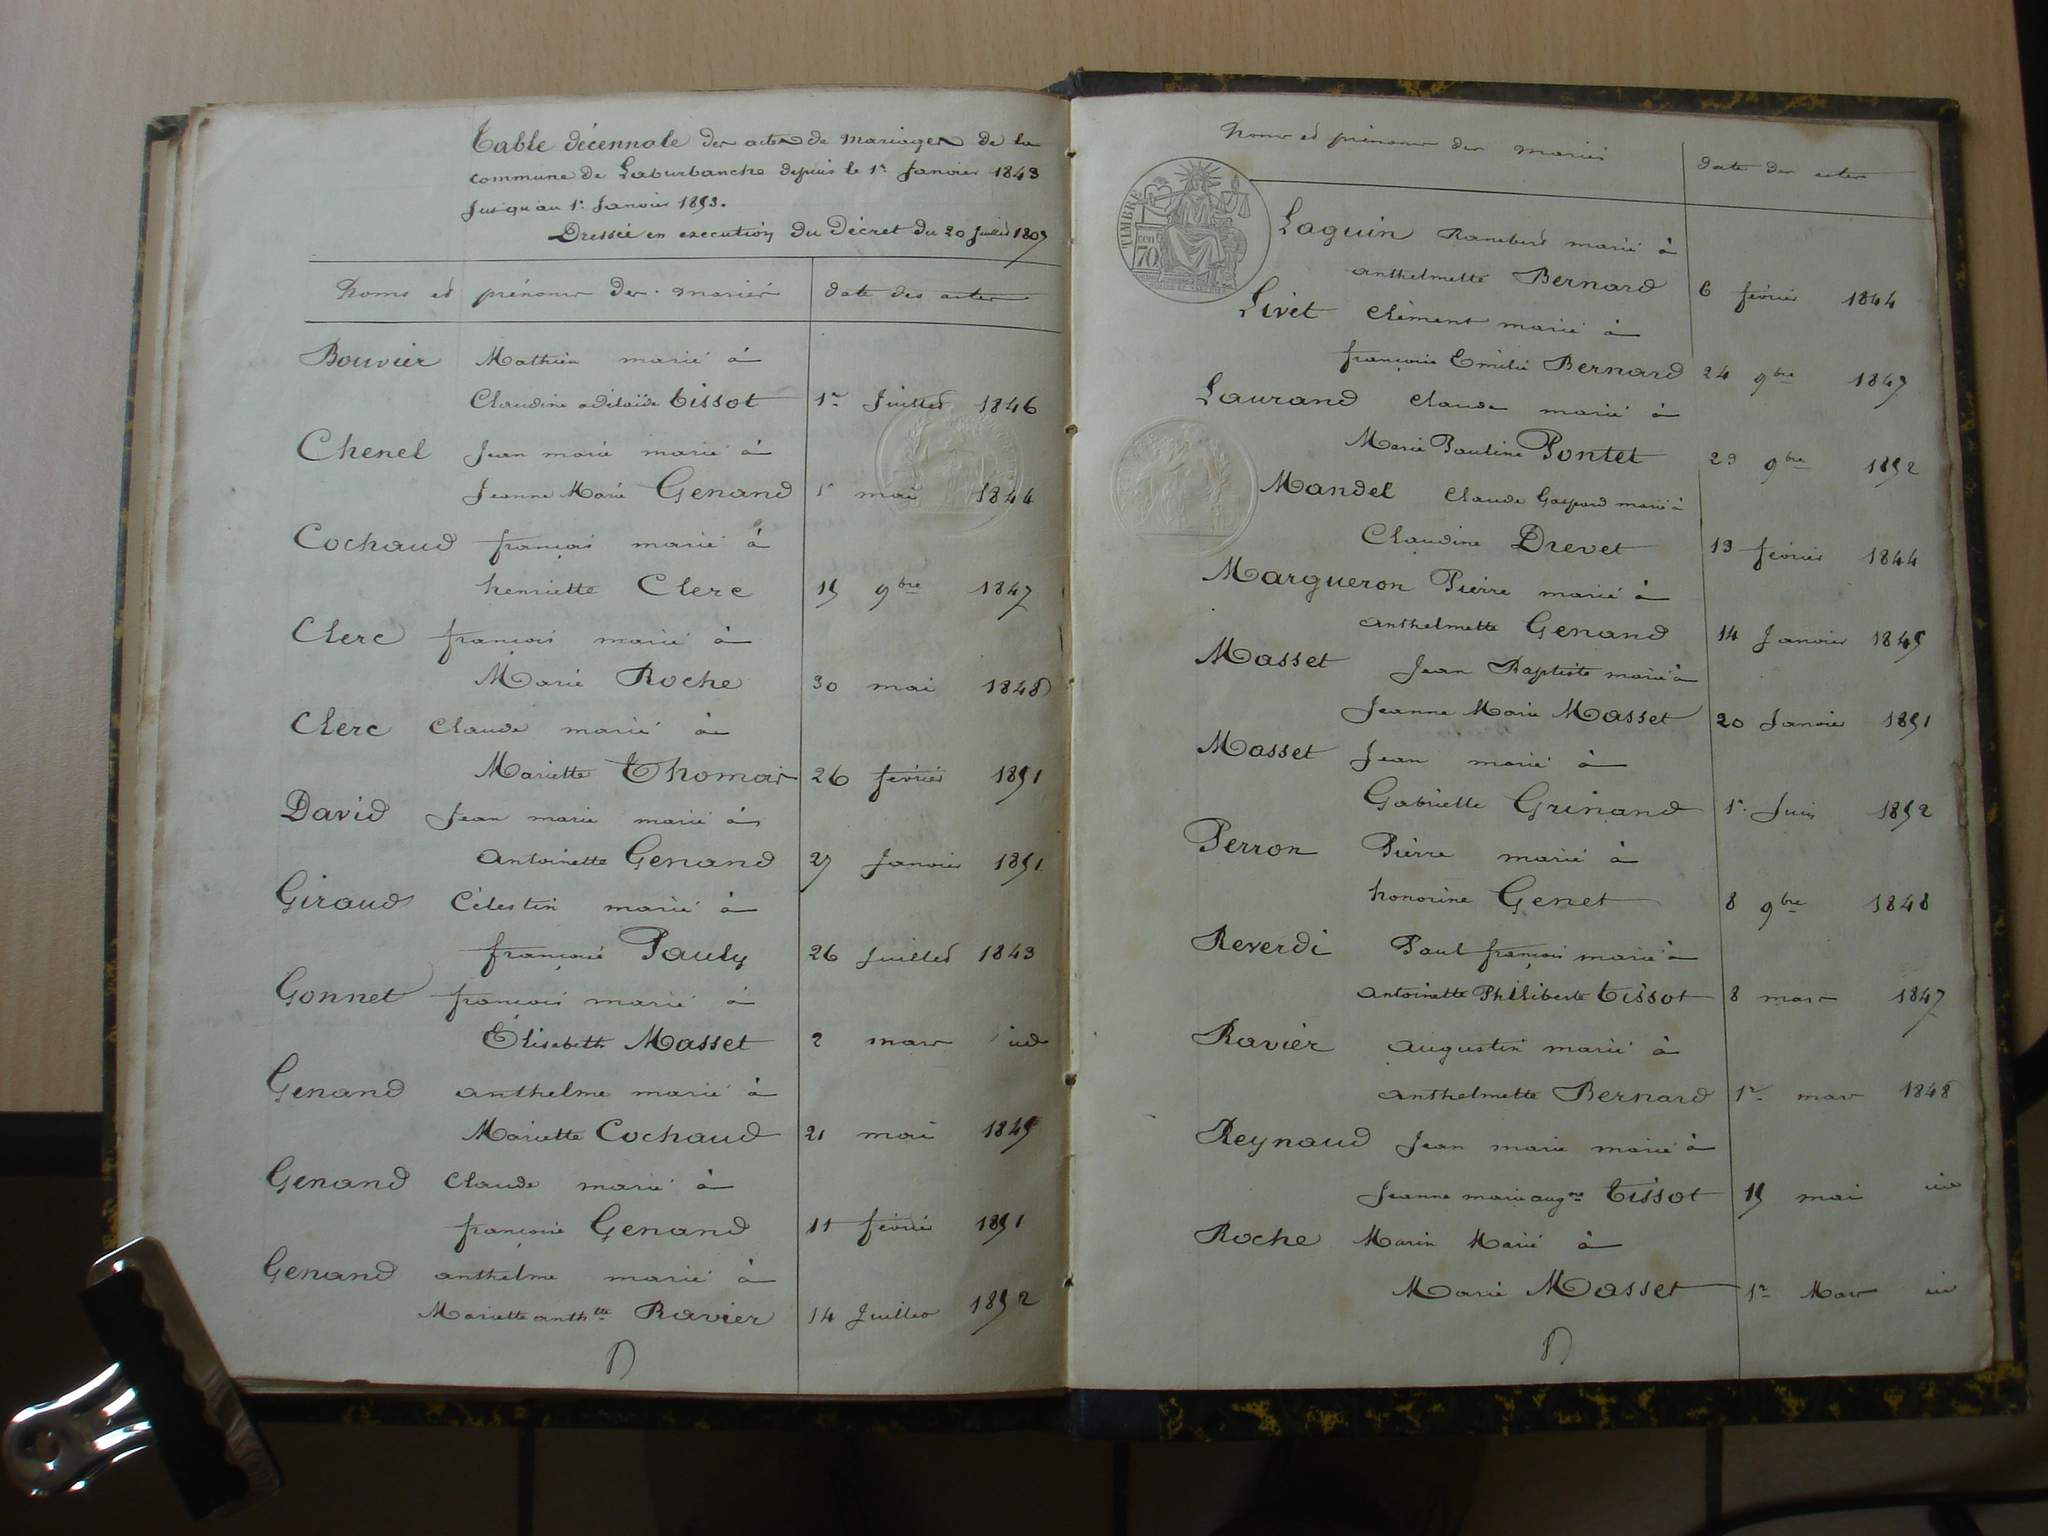 Table décennale des actes de mariages de la
commune de Laburbanche depuis le 1er Janvier 1843
jusqu'au 1er Janvier 1853.
Dressée en execution du Décret du 20 Juillet 1807
noms et prénoms des mariés date des actes
Bouvier Mathieu marié à
Claudine adélaïde Tissot 1er Juillet 1846
Chenel Jean marie marié à
Jeanne Marie Genand 1er mai 1844
Cochaud françois marié à
henriette Clerc 15 9bre 1847
Clerc françois marié à
Marie Roche 30 mai 1848
Clerc Claude marié à
Mariette Thomas 26 février 1851
David Jean marie marié à
Antoinette Genand 27 Janvier 1851
Giraud Célestin marié à
françoise Pauly 26 Juillet 1843
Gonnet françois marié à
Élisabeth Masset 2 mars id
Genand anthelme marié à
Mariette Cochaud 21 mai 1845
Genand Claude marié à
françoise Genand 11 février 1851
Genand anthelme marié à
Mariette anthtte Ravier 14 Juillet 1852
noms et prénoms des mariés date des actes
TIMBRE
70
Laguin Rambert marié à
anthelmette Bernard 6 février 1844
Livet Clément marié à
françoise Emilie Bernard 24 9bre 1847
Laurand Claude marié à
Marie Pauline Pontet 23 9bre 1852
Mandel Claude Gaspard marié à
Claudine Drevet 13 février 1844
Margueron Pierre marié à
anthelmette Genand 14 Janvier 1845
Masset Jean Baptiste marié à
Jeanne Marie Masset 20 Janvier 1851
Masset Jean marié à
Gabrielle Grinand 1er Juin 1852
Perron Pierre marié à
honorine Genet 8 9bre 1848
Reverdi Paul françois marié à
antoinette Philiberte Tissot 8 mars 1847
Ravier augustin marié à
anthelmette Bernard 1er mars 1848
Reynaud Jean marie marié à
Jeanne marie augne Tissot 15 mai id
Roche Marin Marié à
Marie Masset 1er Mars id